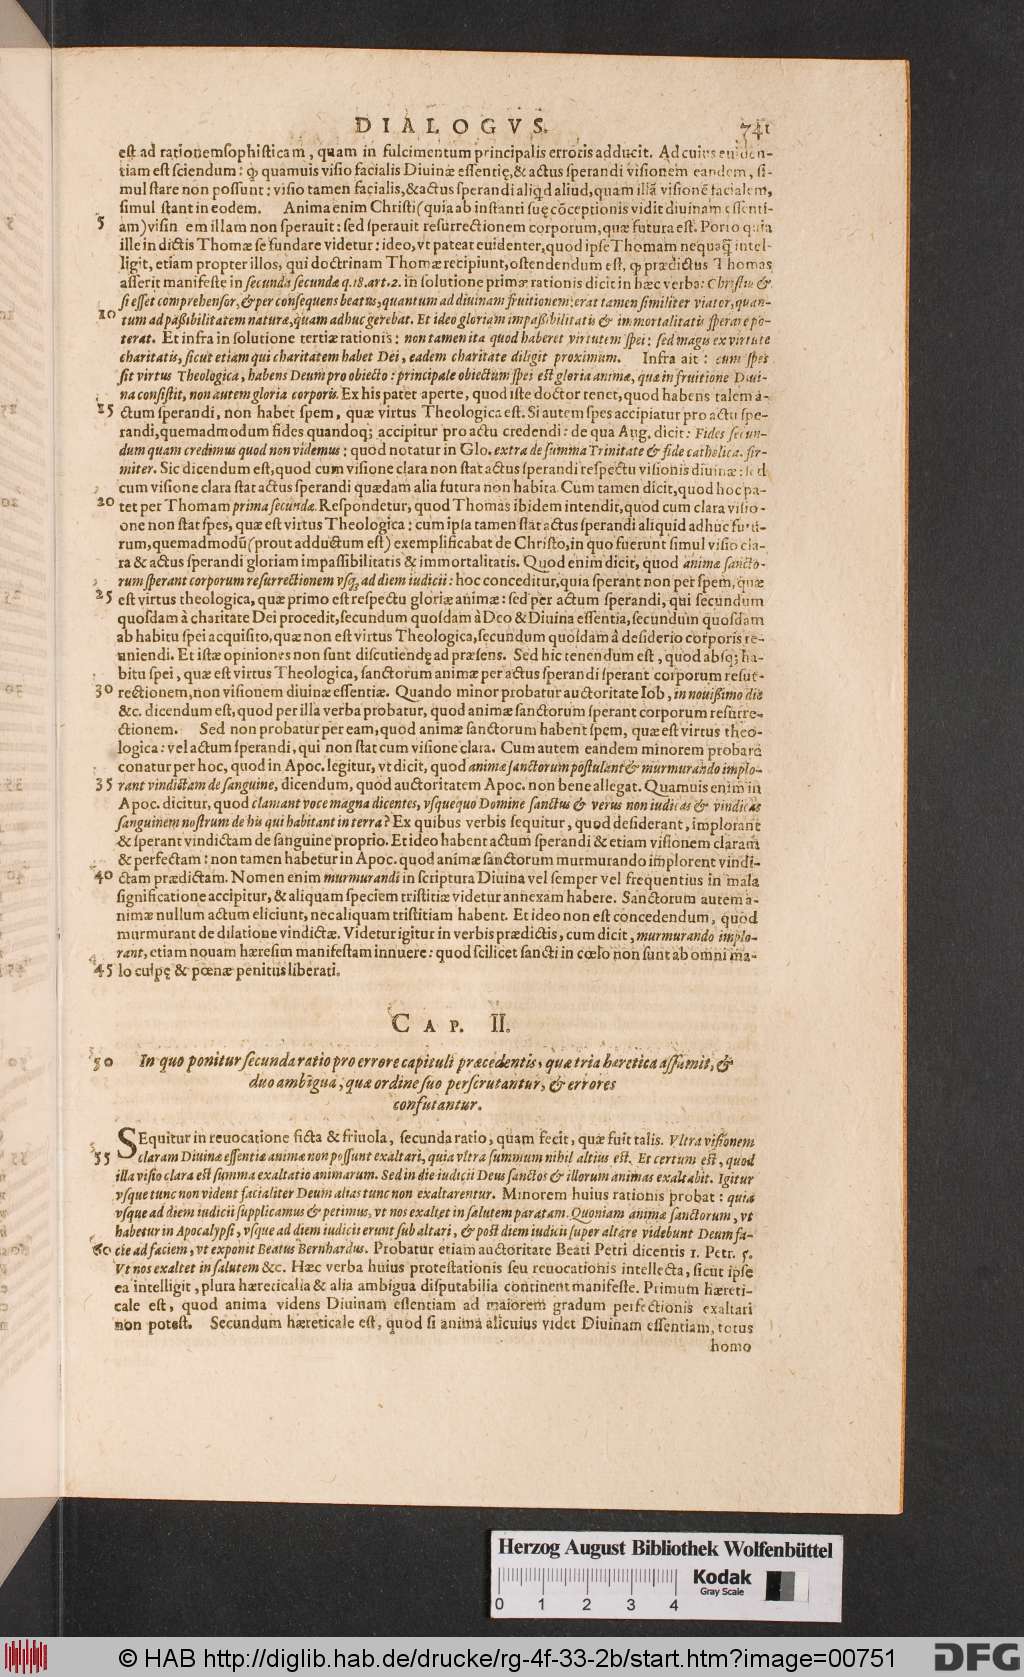 DIALOGVS. 741
est ad rationem sophisticam, quam in fulcimentum principalis erroris adducit. Ad cuius euiden-
tiam est sciendum: ꝙ quamuis visio facialis Diuinæ essentię, & actus sperandi visionem eandem, si-
mul stare non possunt: visio tamen facialis, & actus sperandi aliqd aliud, quam illã visionẽ facialem,
simul stant in eodem. Anima enim Christi (quia ab instanti suę cõceptionis vidit diuinam essenti-
5 am) visin em illam non sperauit: sed sperauit resurrectionem corporum, quæ futura est. Porro quia
ille in dictis Thomæ se fundare videtur: ideo, vt pateat euidenter, quod ipse Thomam nequaq̃ intel-
ligit, etiam propter illos, qui doctrinam Thomæ recipiunt, ostendendum est, ꝙ prædictus Thomas
asserit manifeste in secunda secundæ q. 18. art. 2. in solutione primæ rationis dicit in hæc verba: Christus &
si esset comprehensor, & per consequens beatus, quantum ad diuinam fruitionem: erat tamen similiter viator, quan-
10 tum ad paßibilitatem naturæ, quam adhuc gerebat. Et ideo gloriam impaßibilitatis & immortalitatis sperare po-
terat. Et infra in solutione tertiæ rationis: non tamen ita quod haberet virtutem spei: sed magis ex virtute
charitatis, sicut etiam qui charitatem habet Dei, eadem charitate diligit proximum. Infra ait: cum spes
sit virtus Theologica, habens Deum pro obiecto: principale obiectum spei est gloria animæ, quæ in fruitione Diui-
na consistit, non autem gloria corporis. Ex his patet aperte, quod iste doctor tenet, quod habens talem a-
15 ctum sperandi, non habet spem, quæ virtus Theologica est. Si autem spes accipiatur pro actu spe-
randi, quemadmodum fides quandoq; accipitur pro actu credendi: de qua Aug. dicit: Fides secun-
dum quam credimus quod non videmus: quod notatur in Glo. extra de summa Trinitate & fide catholica. fir-
miter. Sic dicendum est, quod cum visione clara non stat actus sperandi respectu visionis diuinæ: sed
cum visione clara stat actus sperandi quædam alia futura non habita. Cum tamen dicit, quod hoc pa-
20 tet per Thomam prima secundæ. Respondetur, quod Thomas ibidem intendit, quod cum clara visio-
one non stat spes, quæ est virtus Theologica: cum ipsa tamen stat actus sperandi aliquid adhuc futu-
rum, quemadmodũ (prout adductum est) exemplificabat de Christo, in quo fuerunt simul visio cla-
ra & actus sperandi gloriam impassibilitatis & immortalitatis. Quod enim dicit, quod animæ sancto-
rum sperant corporum resurrectionem vsq; ad diem iudicii: hoc conceditur, quia sperant non per spem, quæ
25 est virtus theologica, quæ primo est respectu gloriæ animæ: sed per actum sperandi, qui secundum
quosdam à charitate Dei procedit, secundum quosdam à Deo & Diuina essentia, secundum quosdam
ab habitu spei acquisito, quæ non est virtus Theologica, secundum quosdam à desiderio corporis re-
uniendi. Et istæ opiniones non sunt discutiendę ad præsens. Sed hic tenendum est, quod absq; ha-
bitu spei, quæ est virtus Theologica, sanctorum animæ per actus sperandi sperant corporum resur-
30 rectionem, non visionem diuinæ essentiæ. Quando minor probatur auctoritate Iob, in nouißimo die
&c. dicendum est, quod per illa verba probatur, quod animæ sanctorum sperant corporum resurre-
ctionem. Sed non probatur per eam, quod animæ sanctorum habent spem, quæ est virtus theo-
logica: vel actum sperandi, qui non stat cum visione clara. Cum autem eandem minorem probare
conatur per hoc, quod in Apoc. legitur, vt dicit, quod animæ sanctorum postulant & murmurando implo-
35 rant vindictam de sanguine, dicendum, quod auctoritatem Apoc. non bene allegat. Quamuis enim in
Apoc. dicitur, quod clamant voce magna dicentes, vsquequo Domine sanctus & verus non iudicas & vindicas
sanguinem nostrum de his qui habitant in terra? Ex quibus verbis sequitur, quod desiderant, implorant
& sperant vindictam de sanguine proprio. Et ideo habent actum sperandi & etiam visionem claram
& perfectam: non tamen habetur in Apoc. quod animæ sanctorum murmurando implorent vindi-
40 ctam prædictam. Nomen enim murmurandi in scriptura Diuina vel semper vel frequentius in mala
significatione accipitur, & aliquam speciem tristitiæ videtur annexam habere. Sanctorum autem a-
nimæ nullum actum eliciunt, nec aliquam tristitiam habent. Et ideo non est concedendum, quod
murmurant de dilatione vindictæ. Videtur igitur in verbis prædictis, cum dicit, murmurando implo-
rant, etiam nouam hæresim manifestam innuere: quod scilicet sancti in cœlo non sunt ab omni ma-
45 lo culpę & pœnæ penitus liberati.
CAP. II.
50 In quo ponitur secunda ratio pro errore capituli præcedentis, quæ tria hæretica assumit, &
duo ambigua, quæ ordine suo perscrutantur, & errores
confutantur.
SEquitur in reuocatione ficta & friuola, secunda ratio, quam fecit, quæ fuit talis. Vltra visionem
55 claram Diuinæ essentiæ animæ non possunt exaltari, quia vltra summum nihil altius est. Et certum est, quod
illa visio clara est summa exaltatio animarum. Sed in die iudicii Deus sanctos & illorum animas exaltabit. Igitur
vsque tunc non vident facialiter Deum alias tunc non exaltarentur. Minorem huius rationis probat: quia
vsque ad diem iudicii supplicamus & petimus, vt nos exaltet in salutem paratam. Quoniam animæ sanctorum, vt
habetur in Apocalypsi, vsque ad diem iudicii erunt sub altari, & post diem iudicii super altare videbunt Deum fa-
60 cie ad faciem, vt exponit Beatus Bernhardus. Probatur etiam auctoritate Beati Petri dicentis 1. Petr. 5.
Vt nos exaltet in salutem &c. Hæc verba huius protestationis seu reuocationis intellecta, sicut ipse
ea intelligit, plura hæreticalia & alia ambigua disputabilia continent manifeste. Primum hæreti-
cale est, quod anima videns Diuinam essentiam ad maiorem gradum perfectionis exaltari
non potest. Secundum hæreticale est, quod si anima alicuius videt Diuinam essentiam, totus
homo
Herzog August Bibliothek Wolfenbüttel
Kodak
Gray Scale
0 1 2 3 4
© HAB http://diglib.hab.de/drucke/rg-4f-33-2b/start.htm?image=00751
DFG